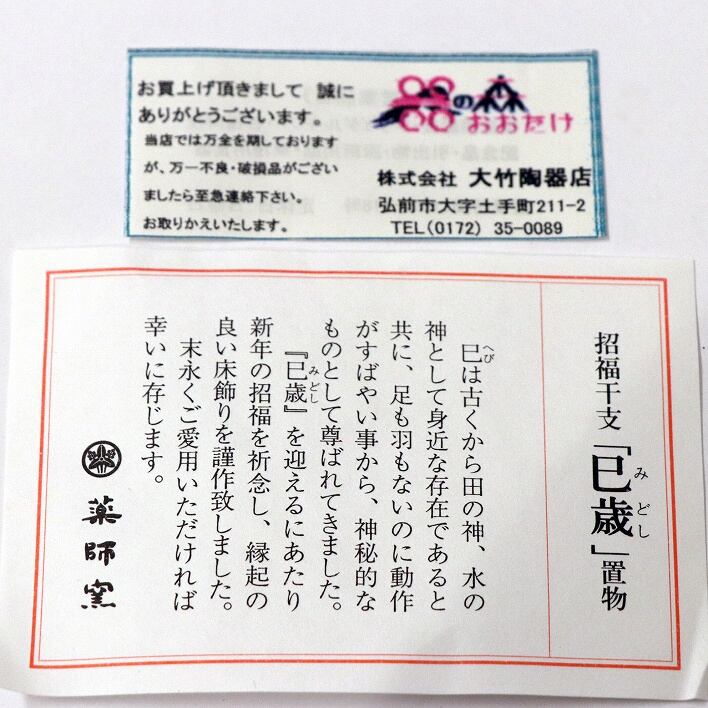 お買上げ頂きまして 誠に
ありがとうございます。
当店では万全を期しております
が、万一不良・破損品がござい
ましたら至急連絡下さい。
お取りかえいたします。
器の森
おおたけ
株式会社 大竹陶器店
弘前市大字土手町211-2
TEL(0172) 35-0089
招福干支「巳歳」置物
みどし
巳は古くから田の神、水の
へび
神として身近な存在であると
共に、足も羽もないのに動作
がすばやい事から、神秘的な
ものとして尊ばれてきました。
『巳歳』を迎えるにあたり
みどし
新年の招福を祈念し、縁起の
良い床飾りを謹作致しました。
末永くご愛用いただければ
幸いに存じます。
薬師窯